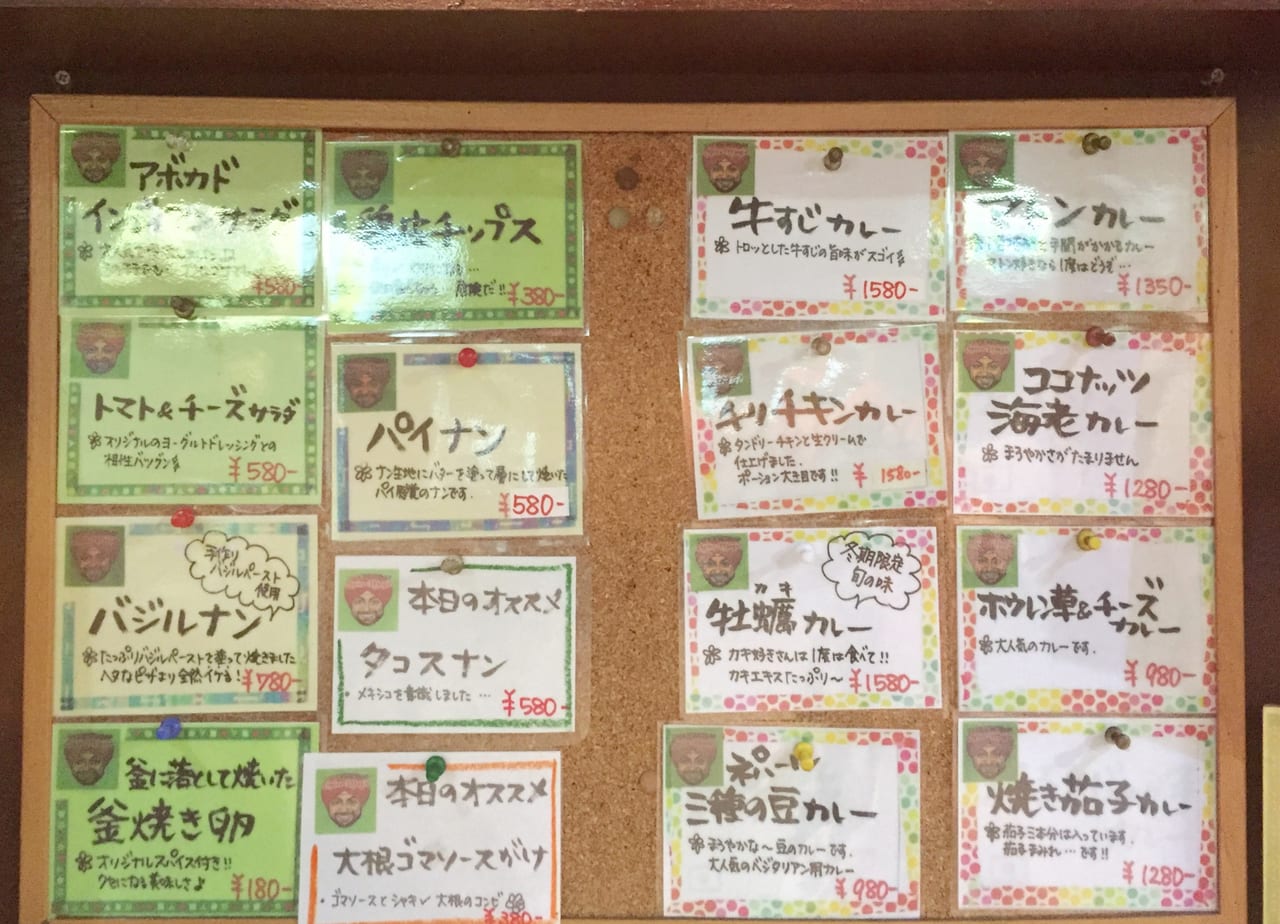 アボカド
サラダ
¥580-
チップス
¥380-
トマト&チーズサラダ
オリジナルのヨーグルトドレッシングとの
相性バツグン
¥580-
パイナン
ナン生地にバターを塗って層にして焼いた
パイ感覚のナンです.
¥580-
手作り
バジルペースト
使用
バジルナン
たっぷりバジルペーストで塗って焼きました
ヘタなピザより全然イケる!
¥780-
本日のオススメ
タコスナン
・メキシコを意識しました …
¥580-
釜に落として焼いた
釜焼き卵
オリジナルスパイス付き!!
クセになる美味しさ♪
¥180-
本日のオススメ
大根ゴマソースがけ
・ゴマソースとシャキシャキ大根のコンビ
¥380-
牛すじカレー
トロッとした牛すじの旨味がスゴイ
¥1580-
カレー
手間がかかるカレー
マトン好きなら1度はどうぞ…
¥1350-
チリチキンカレー
タンドリーチキンと生クリームで
仕上げました.
ポーション大き目です!!
¥1580-
ココナッツ
海老カレー
まろやかさがたまりません
¥1280-
冬期限定
旬の味
カキ
牡蠣カレー
カキ好きさんは1度は食べて!!
カキエキスたっぷり〜
¥1580-
ホウレン草&チーズ
カレー
大人気のカレーです.
¥980-
ネパール
三種の豆カレー
まろやかな〜豆のカレーです.
大人気のベジタリアン用カレー
¥980-
焼き茄子カレー
茄子三本分は入っています.
茄子まみれ…です!!
¥1280-